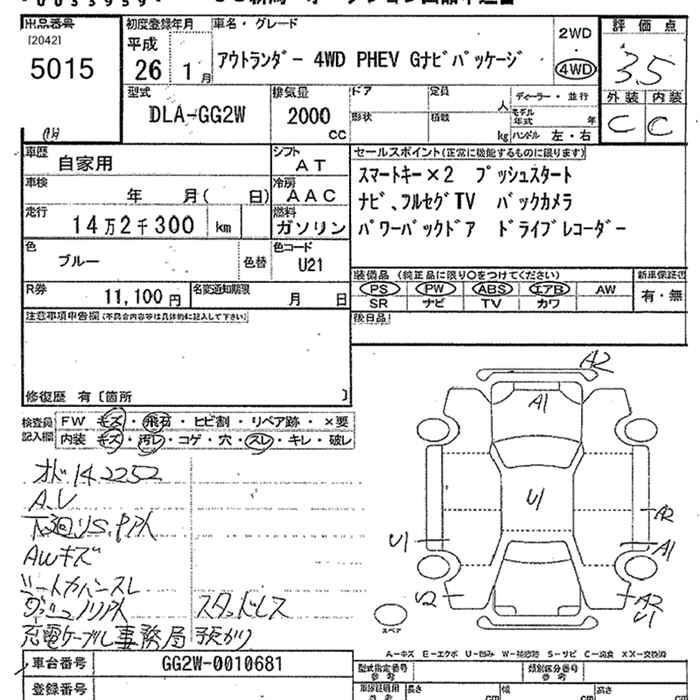 出品番号
[2042]
5015
初度登録年月
平成
26 1月
車名・グレード
アウトランダー 4WD PHEV Gナビパッケージ
2WD
4WD
評価点
3.5
外装 内装
C C
型式
DLA-GG2W
排気量
2000
cc
ドア
定員
人
形状
積載
kg
ディーラー・並行
モデル年式 年
ハンドル 左・右
車歴
自家用
シフト
AT
車検
年 月( 日)
冷房
AAC
走行
14万2千300 km
燃料
ガソリン
色
ブルー
色替
色コード
U21
R券
11,100円
名変通知期限
月 日
セールスポイント(正常に機能するものに限ります)
スマートキー×2 プッシュスタート
ナビ、フルセグTV バックカメラ
パワーバックドア ドライブレコーダー
装備品 (純正品に限り○をつけてください)
PS PW ABS エアB AW
SR ナビ TV カワ
新車保証書
有・無
後日品
注意事項申告欄(不具合内容等は具体的に記入して下さい)
修復歴 有〔箇所 〕
検査員
記入欄
FW キズ・飛石・ヒビ割・リペア跡・×要
内装 キズ・汚レ・コゲ・穴・スレ・キレ・破レ
オド 142252
A.V
下回りS.P所
AWキズ
シートカバースレ
スタッドレス
充電ケーブル事務局預かり
A2
A1
U1
A2
U1
A1
U2
A2
U1
スペア
A-キズ E-エクボ U-凹み W-補修跡 S-サビ C-腐食 XX-交換済
車台番号
GG2W-0010681
登録番号
型式指定番号
参考
類別区分番号
参考
長さ
cm
幅
cm
高さ
cm